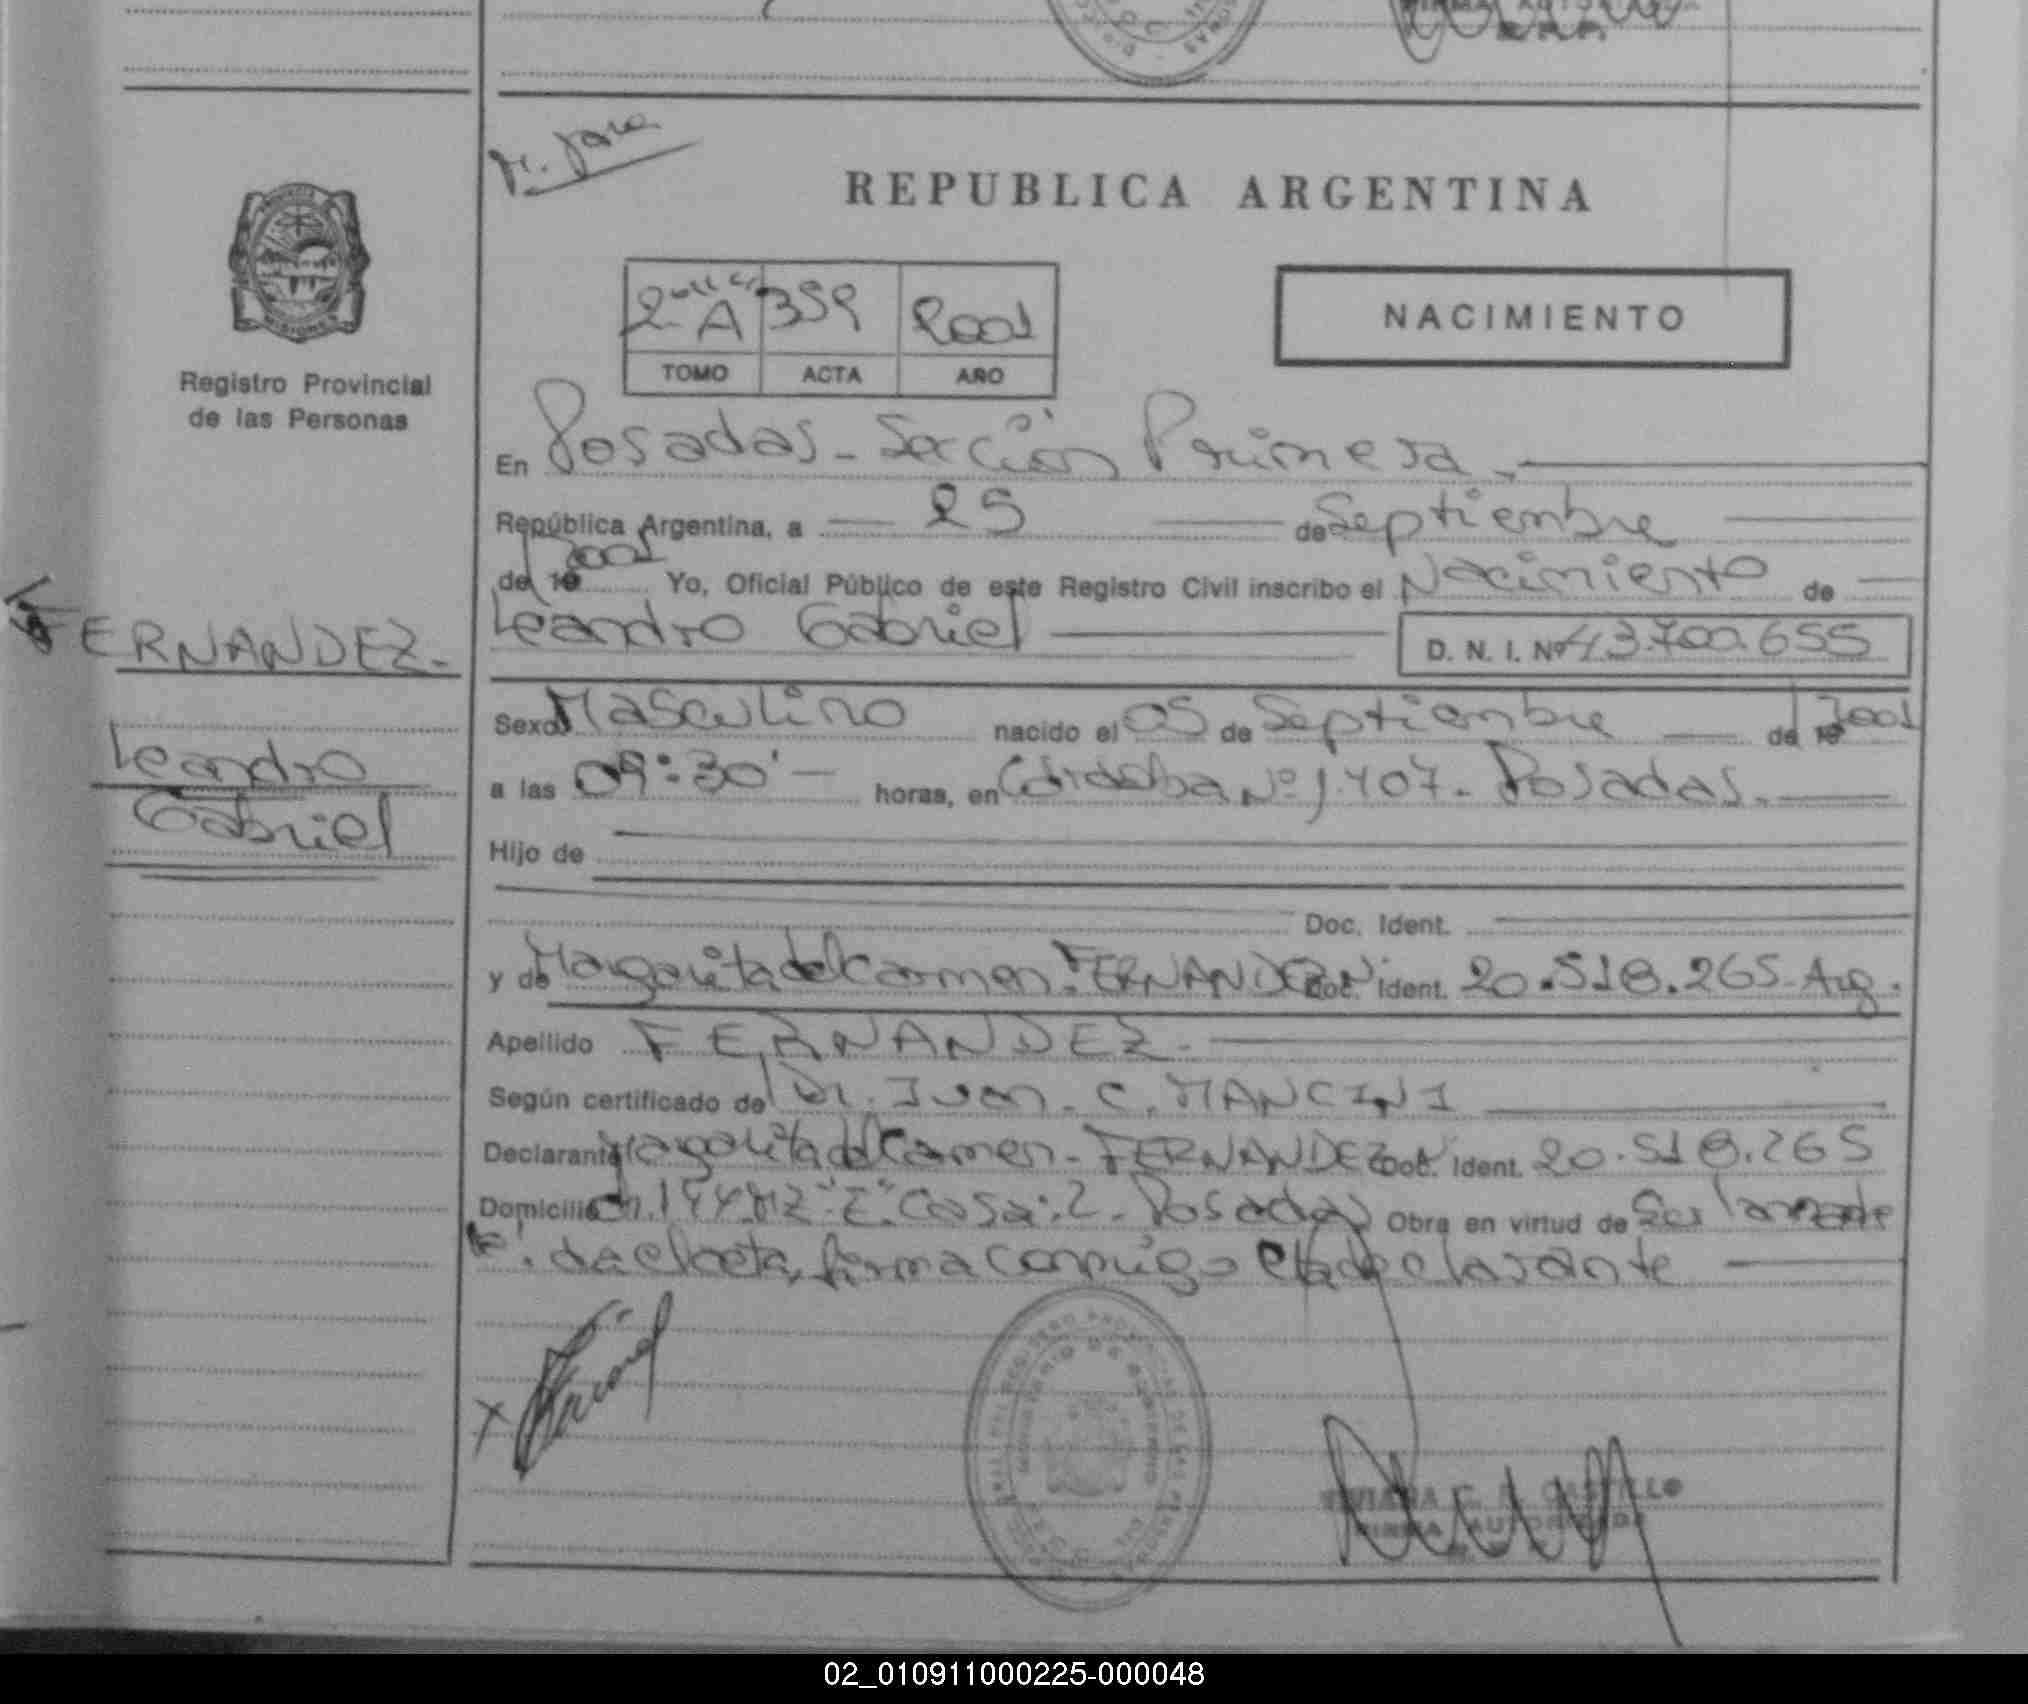 REPUBLICA ARGENTINA
2º "A" 359 2001
TOMO ACTA AÑO
NACIMIENTO
MISIONES
Registro Provincial
de las Personas
En Posadas - Sección Primera.
República Argentina, a 25 de Septiembre
de 19 2001 Yo, Oficial Público de este Registro Civil inscribo el Nacimiento de
FERNANDEZ.
Leandro Gabriel D. N. I. Nº 43.700.655
Sexo Masculino nacido el 05 de Septiembre de 19 2001
Leandro
Gabriel
a las 09:30' horas, en Córdoba Nº 1.407. Posadas.
Hijo de
Doc. Ident.
y de Margarita del Carmen. FERNANDEZ Doc. Ident. 20.518.265 - Arg.
Apellido FERNANDEZ.
Según certificado de Dr. Juan. C. MANCINI
Declarante Margarita del Carmen. FERNANDEZ Doc. Ident. 20.518.265
Domicilio Ch. 144 MZ "Z" Casa: 2. Posadas Obra en virtud de Ser la madre
Leída el acta, firma conmigo la declarante
VIVIANA CASTILLO
FIRMA AUTORIZADA
02_010911000225-000048